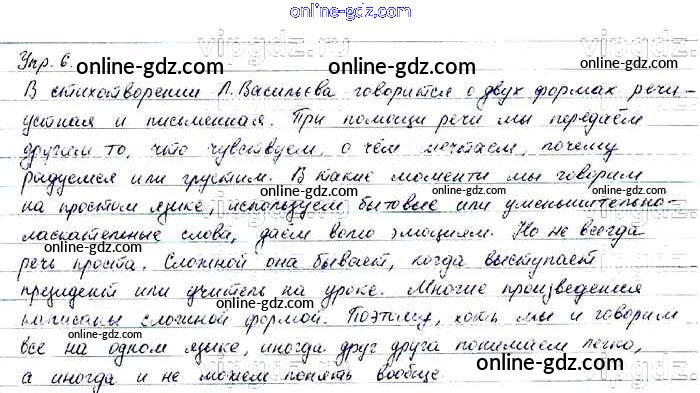 online-gdz.com
vipgdz.ru
Упр. 6.
online-gdz.com online-gdz.com
В стихотворении Л. Васильева говорится о двух формах речи-
устная и письменная. При помощи речи мы передаём
другим то, что чувствуем, о чём мечтаем, почему
радуемся или грустим. В такие моменты мы говорим
online-gdz.com online-gdz.com
на простом языке, используем бытовые или уменьшительно-
ласкательные слова, даём волю эмоциям. Но не всегда
online-gdz.com online-gdz.com
речь проста. Сложной она бывает, когда выступает
президент или учитель на уроке. Многие произведения
написаны сложной формой. Поэтому, хоть мы и говорим
online-gdz.com online-gdz.com
все на одном языке, иногда друг друга понимаем легко,
online-gdz.com
а иногда и не можем понять вообще
vipgdz.ru
online-gdz.com